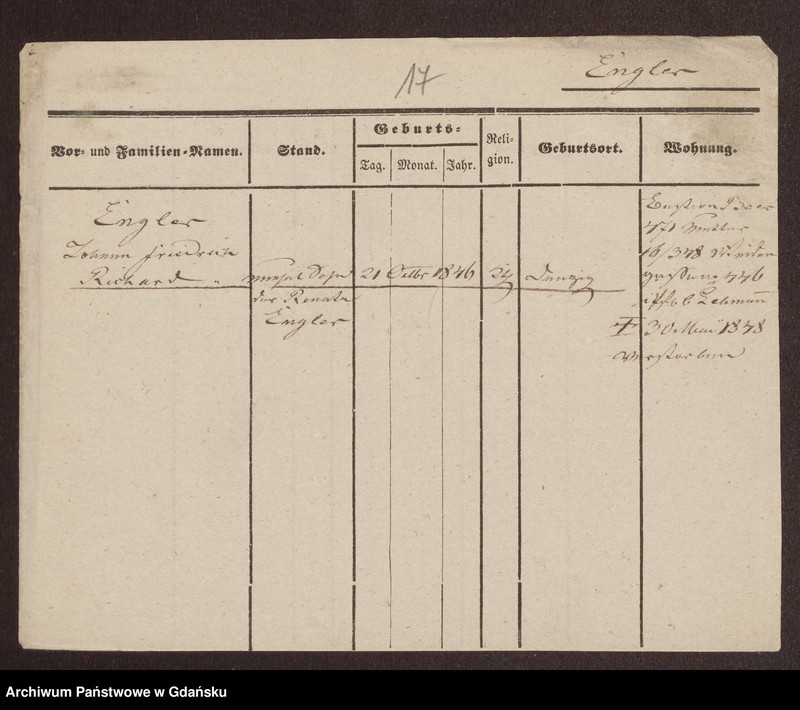 17
Engler
Vor- und Familien-Namen.
Stand.
Geburts-
Tag.
Monat.
Jahr.
Reli-
gion.
Geburtsort.
Wohnung.
Engler
Johann Friedrich
Richard
unehel Sohn
der Renate
Engler
21 Octbr 1846
Danzig
Mutter
Weiden
gasse
Lehmann
† 30 Mai 1848
verstorben
Archiwum Państwowe w Gdańsku